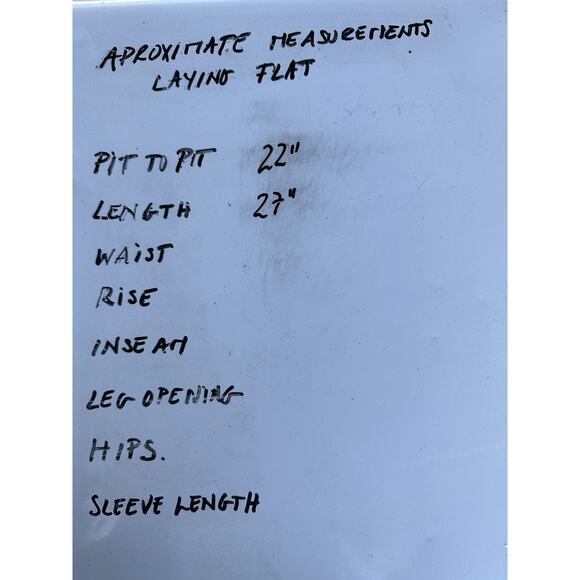 APROXIMATE MEASUREMENTS
LAYING FLAT
PIT TO PIT 22"
LENGTH 27"
WAIST
RISE
INSEAM
LEG OPENING
HIPS.
SLEEVE LENGTH